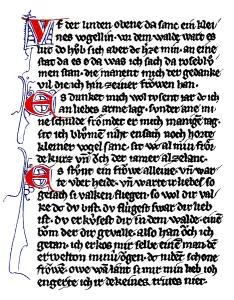 Vf der linden obene da sanc ein klei
nes vogellin. vor dem walde wart es
lut do hvͦb sich aber dc hˢze min. an eine
stat da es e da was ich sach da roseblvͦ
men stan. die manent mich der gedanke
vil die ich hin zeiner frowen han.
Es dunket mich wol tvsent iar dc ich
an liebes arme lag. svnder ane mi
ne schulde frͦmdet er mich manige tag.
sit ich blvͦmen niht ensach noch horte
kleiner vogel sanc. sit wc al min frͦi
de kurz vn̄ ͦch der iamer alzelanc.
Es stvͦnt ein frͦwe alleine. vn̄ war
te vber heide. vn̄ warte ir liebes. so
gesach si valken fliegen. so wol dir val
ke dc dv bist. dv flvgest swar dir lieb
ist. dv erkvsest dir in dem walde. eine
bͦm der dir gevalle. also han ͦch ich
getan. ich erkos mir selbe einen man
der welton minv ͦgen. dc nident schone
frͦwen. owe wan lant si mir min lieb. ich
engerte ir dekeines trvtes niet